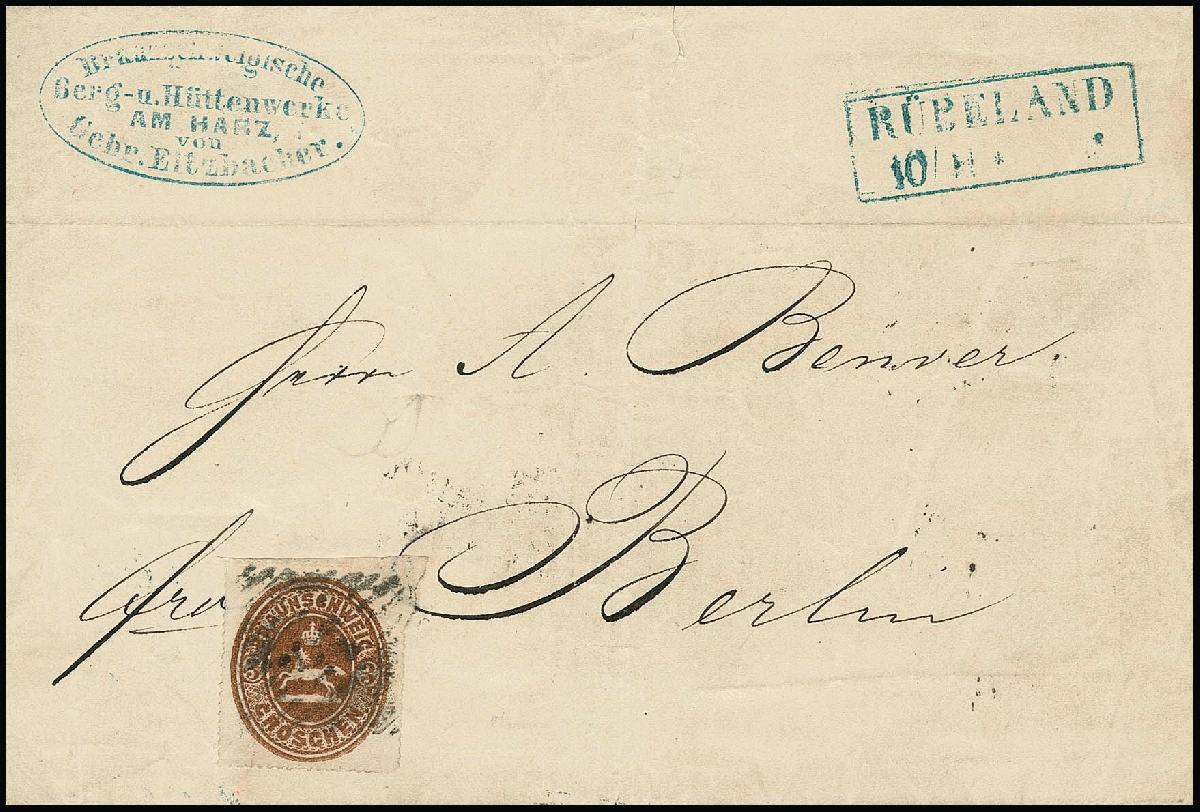 Braunschweigische
Berg-u. Hüttenwerke
AM HARZ,
von
Gebr. Eltzbacher.
RÜBELAND
10/
Herr A. Benver.
Berlin
BRAUNSCHWEIG
GROSCHEN